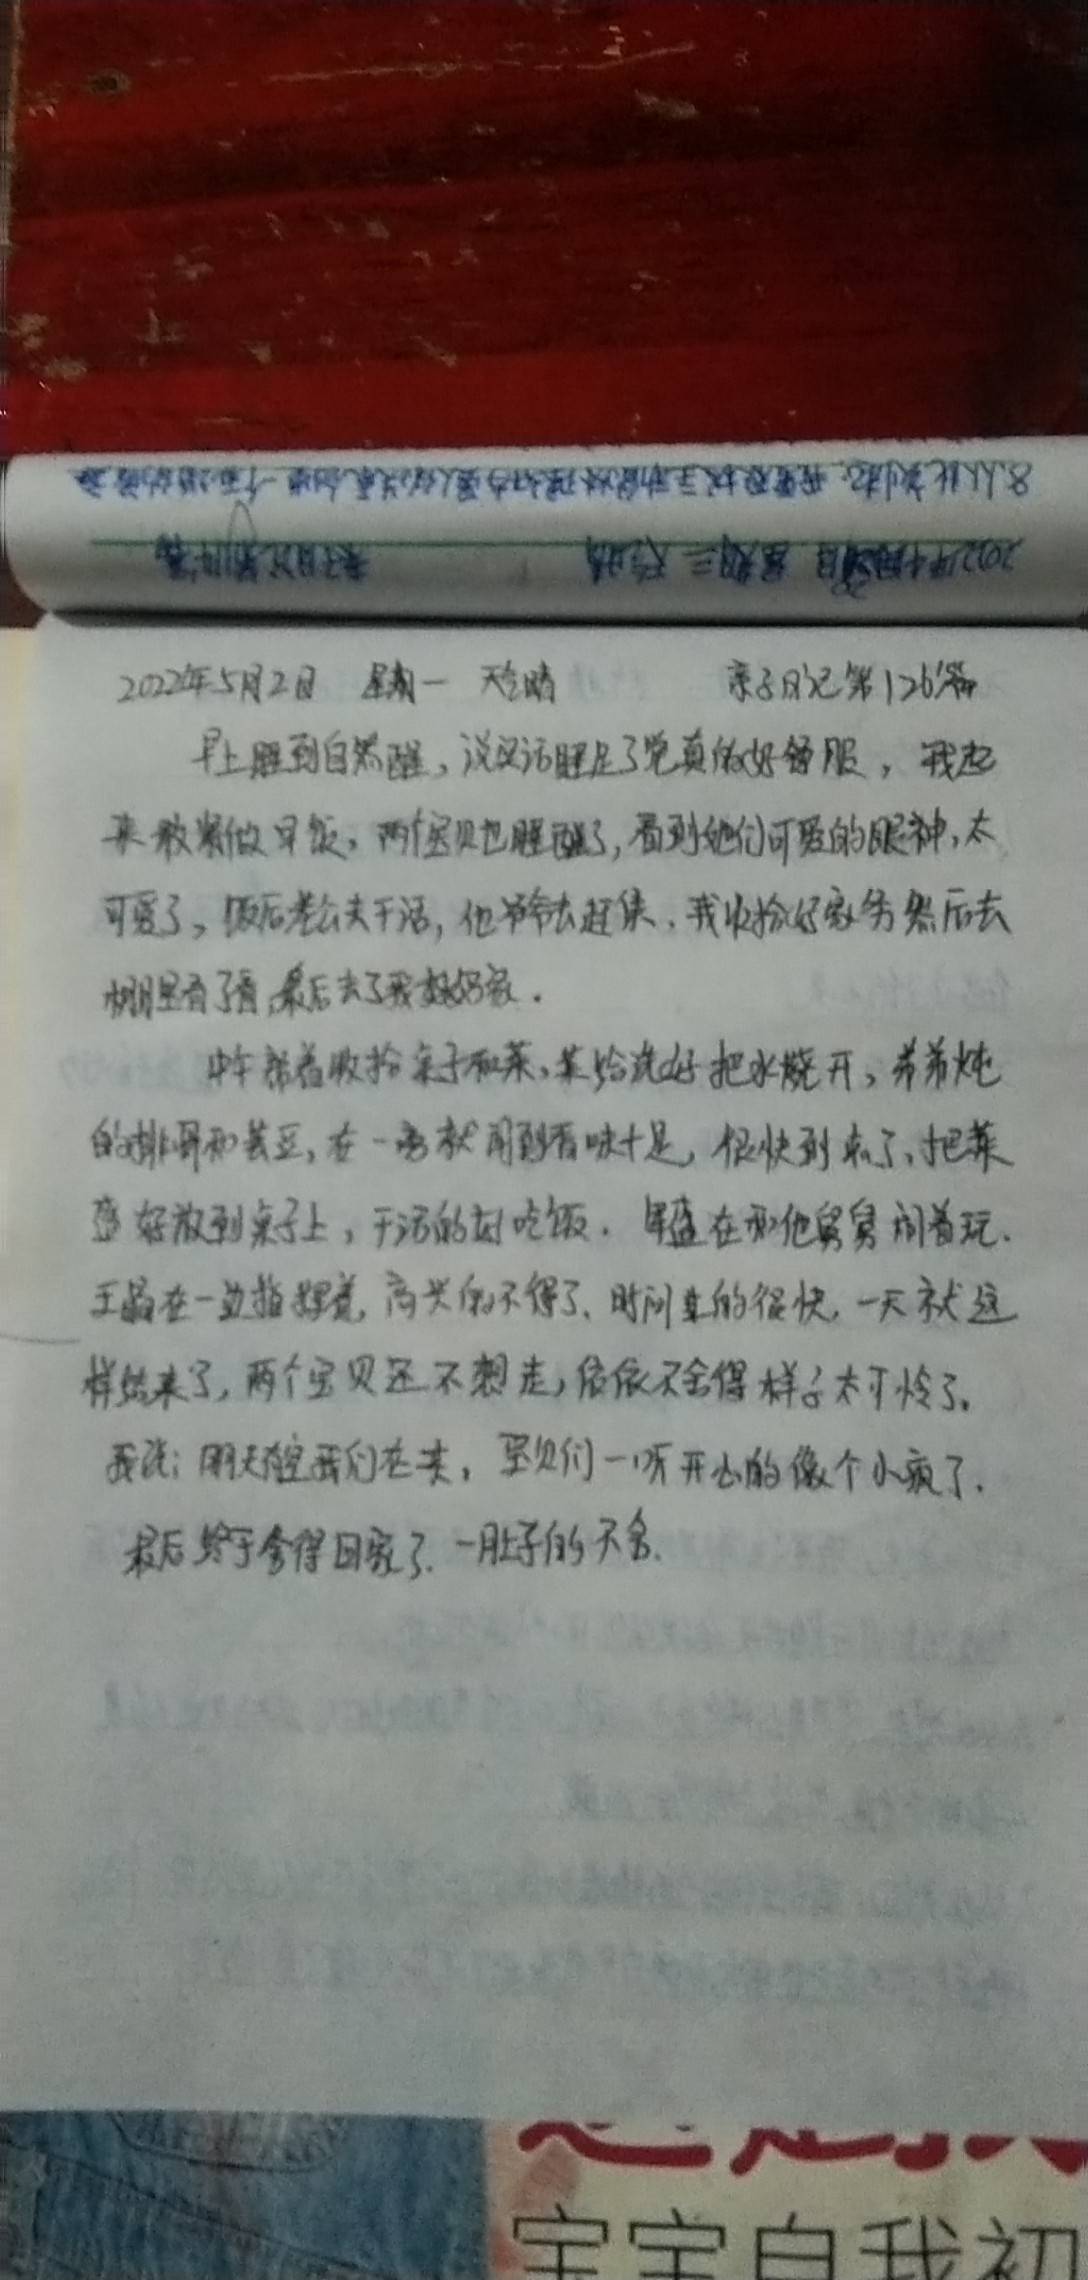 2022年5月2日 星期一 天气晴 亲子日记第126篇
早上睡到自然醒，说实话睡足了觉真的好舒服，我起
来敢紧做早饭，两个宝贝也睡醒了，看到她们可爱的眼神，太
可爱了，饭后老公去干活，他爷爷去赶集．我收拾好家务然后去
棚里看了看，最后去了我妈妈家．
中午帮着收拾桌子和菜，菜给洗好把水烧开，弟弟炖
的排骨和芸豆，在一旁就闻到香味十足，很快到点了，把菜
盛好放到桌子上，干活的过吃饭．在和他舅舅闹着玩．
王晶在一边指挥着，高兴的不得了．时间过的很快，一天就这
样结束了，两个宝贝还不想走，依依不舍得样子太可怜了。
我说：明天有空我们在来，宝贝们一听开心的像个小疯了．
最后终于舍得回家了．一肚子的不舍．
2022年4月 星期三 天气晴
宝宝自我初